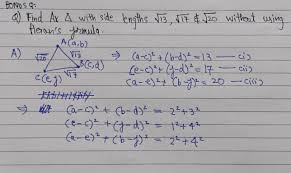 BONUS Q:
Q) Find Ar Δ with side lengths √13, √17 & √20 without using
Heron's formula.
A) A(a,b)
√20 √13
√17 B(c,d)
C(e,f)
⇒ (a-c)² + (b-d)² = 13 — (i)
(e-c)² + (f-d)² = 17 — (ii)
(a-e)² + (b-f)² = 20 — (iii)
⇒ (a-c)² + (b-d)² = 2² + 3²
(e-c)² + (f-d)² = 1² + 4²
(a-e)² + (b-f)² = 2² + 4²